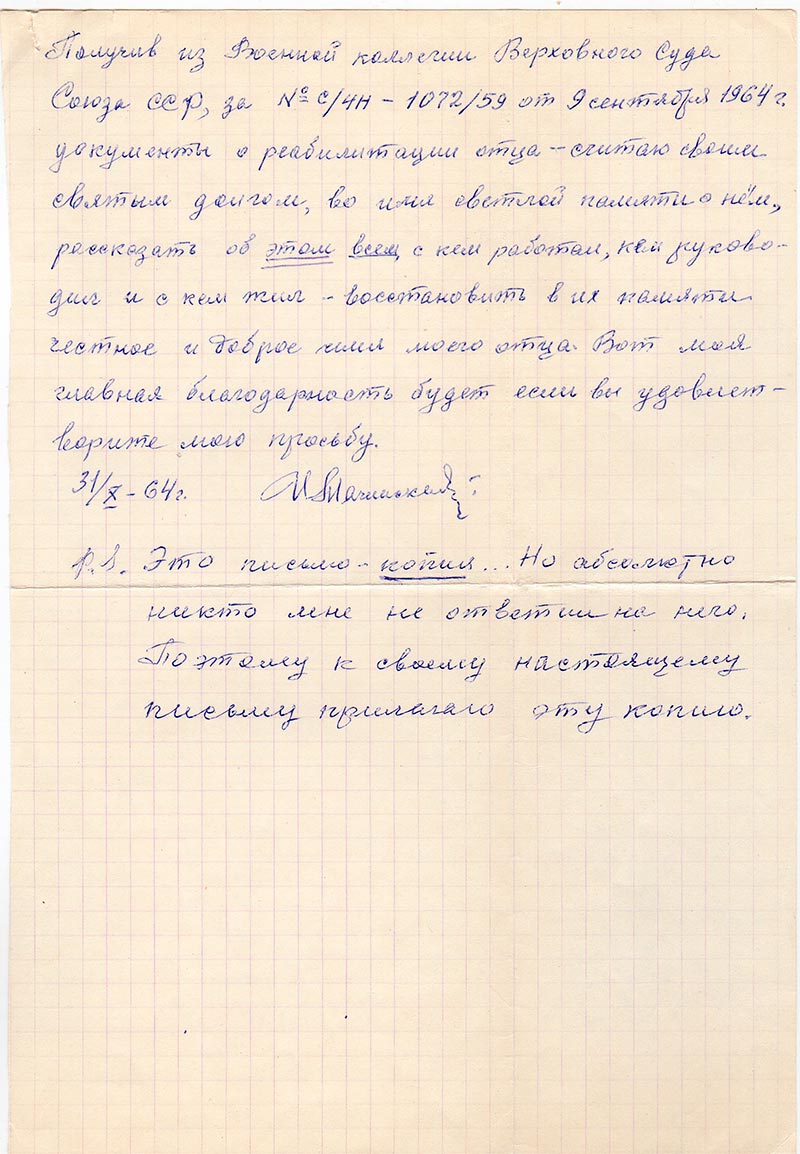 Получив из Военной коллегии Верховного Суда
Союза ССР, за № с/4н - 1072/59 от 9 сентября 1964 г.
документы о реабилитации отца - считаю своим
святым долгом, во имя светлой памяти о нём,
рассказать об этом всем с кем работал, кем руково-
дил и с кем жил - восстановить в их памяти
честное и доброе имя моего отца. Вот моя
главная благодарность будет если вы удовлет-
ворите мою просьбу.
31/X - 64 г.
P.S. Это письмо - копия... Но абсолютно
никто мне не ответил на него.
Поэтому к своему настоящему
письму прилагаю эту копию.